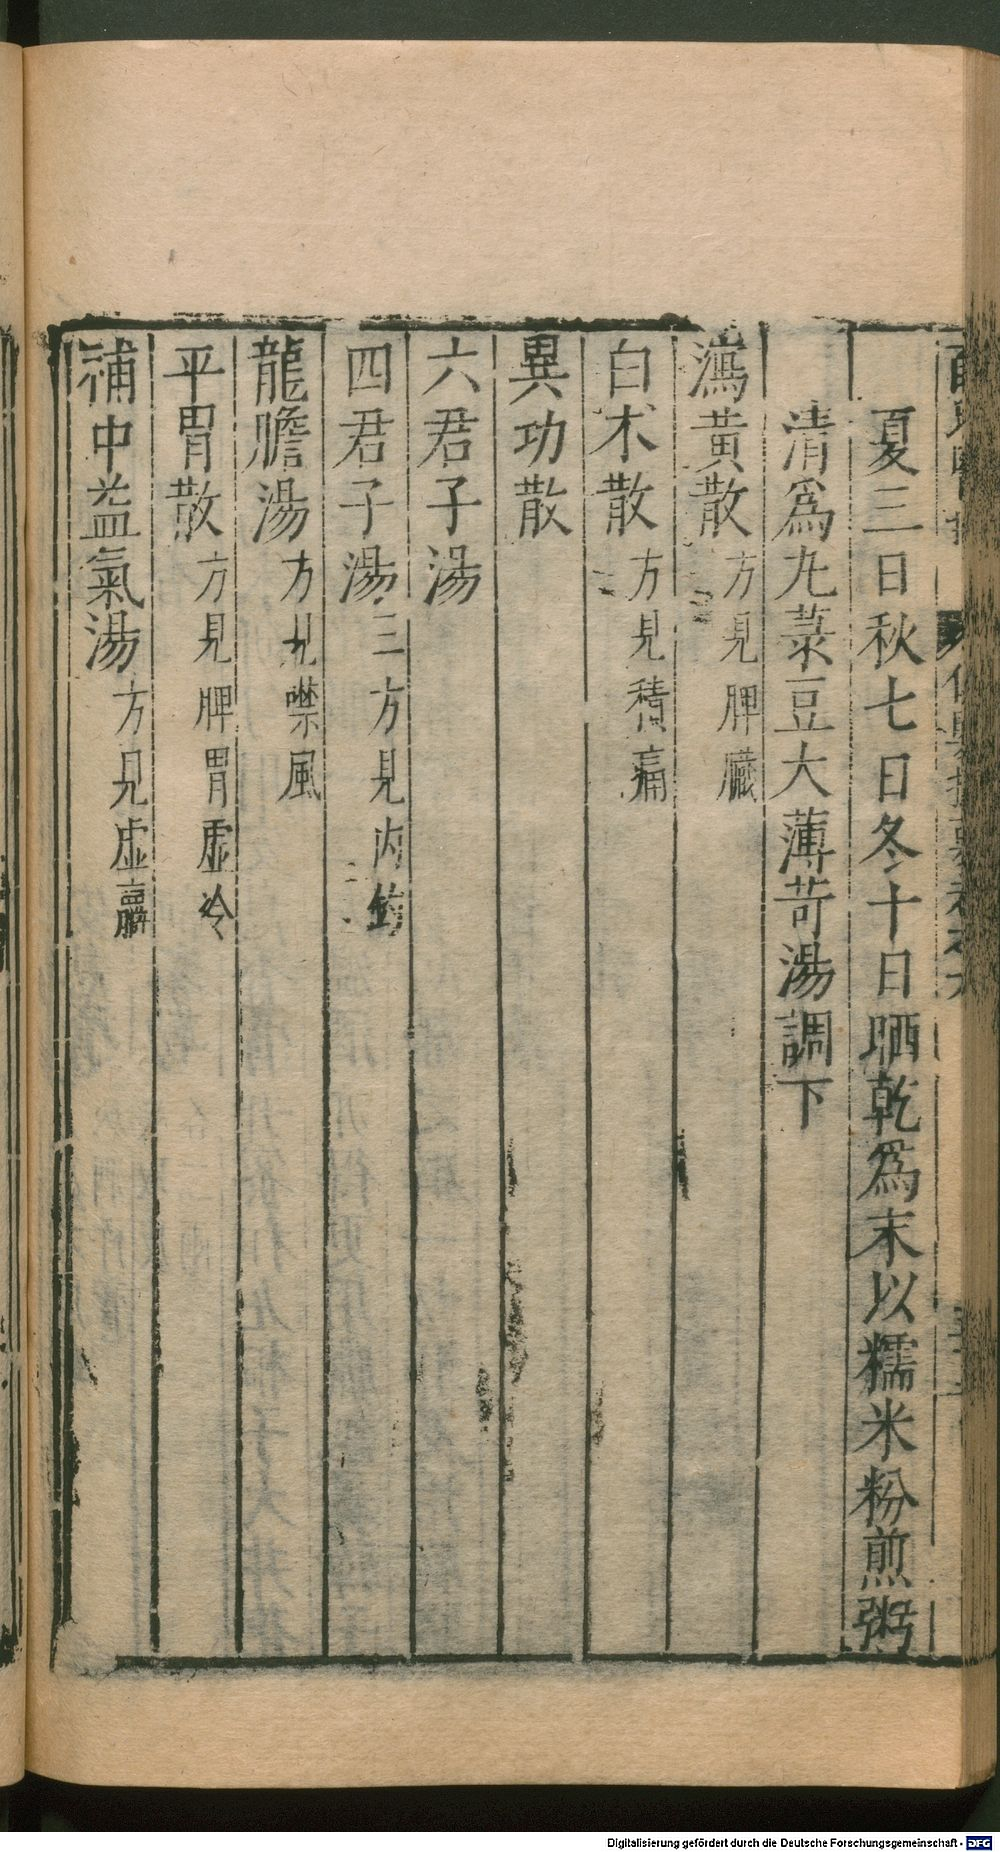 夏三日秋七日冬十日晒乾為末以糯米粉煎粥
清為丸菉豆大薄苛湯調下
瀉黃散方見脾臟
白朮散方見積痛
異功散
六君子湯
四君子湯三方見内釣
龍膽湯方見噤風
平胃散方見脾胃虛冷
補中益氣湯方見虛羸
Digitalisierung gefördert durch die Deutsche Forschungsgemeinschaft - DFG